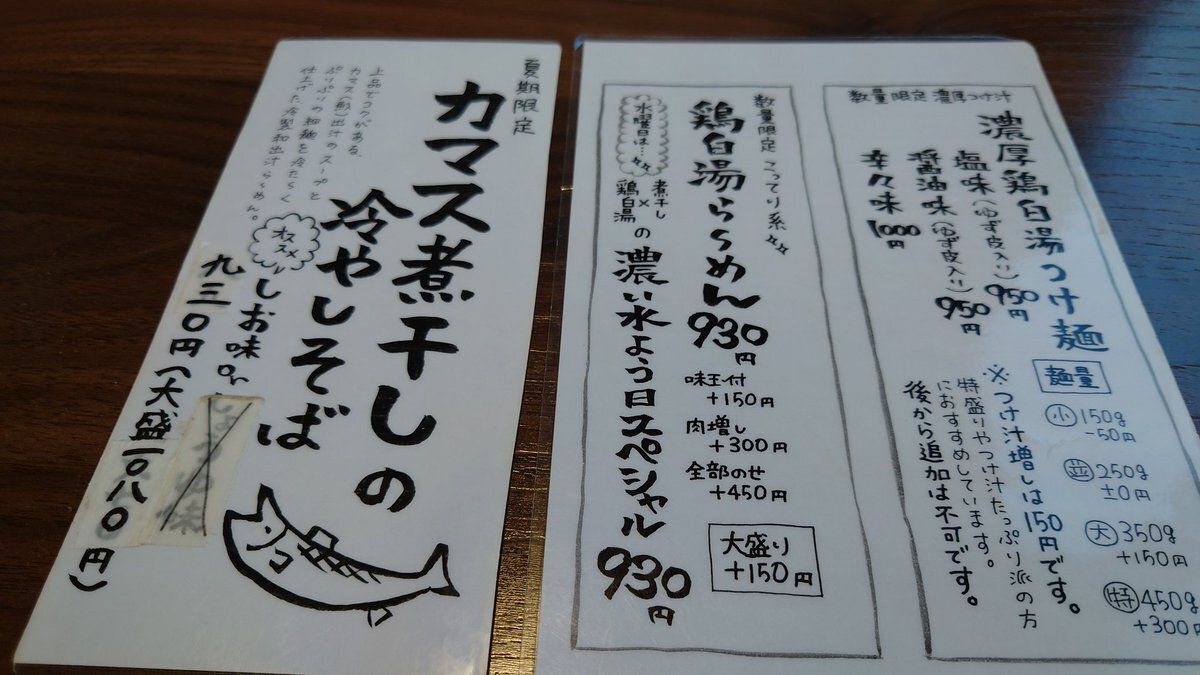 夏期限定
カマス煮干しの
冷やしそば
上品でコクがある、
カマス(魚)出汁のスープと
ぷりぷりの細麺を冷たく
仕上げた冷製和出汁らーめん。
オススメ
しお味or
九三〇円(大盛一〇八〇円)
数量限定 濃厚つけ汁
濃厚鶏白湯つけ麺
塩味(ゆず皮入り)950円
醤油味(ゆず皮入り)950円
辛々味 1000円
麺量
小 150g
-50円
並 250g
±0円
大 350g
+150円
特 450g
+300
※つけ汁増しは150円です。
特盛りやつけ汁たっぷり派の方
におすすめしています。
後から追加は不可です。
数量限定 こってり系
鶏白湯らーめん 930円
味玉付
+150円
肉増し
+300円
全部のせ
+450円
大盛り
+150円
水曜日は…
煮干し×鶏白湯の
濃い水よう日スペシャル 930円